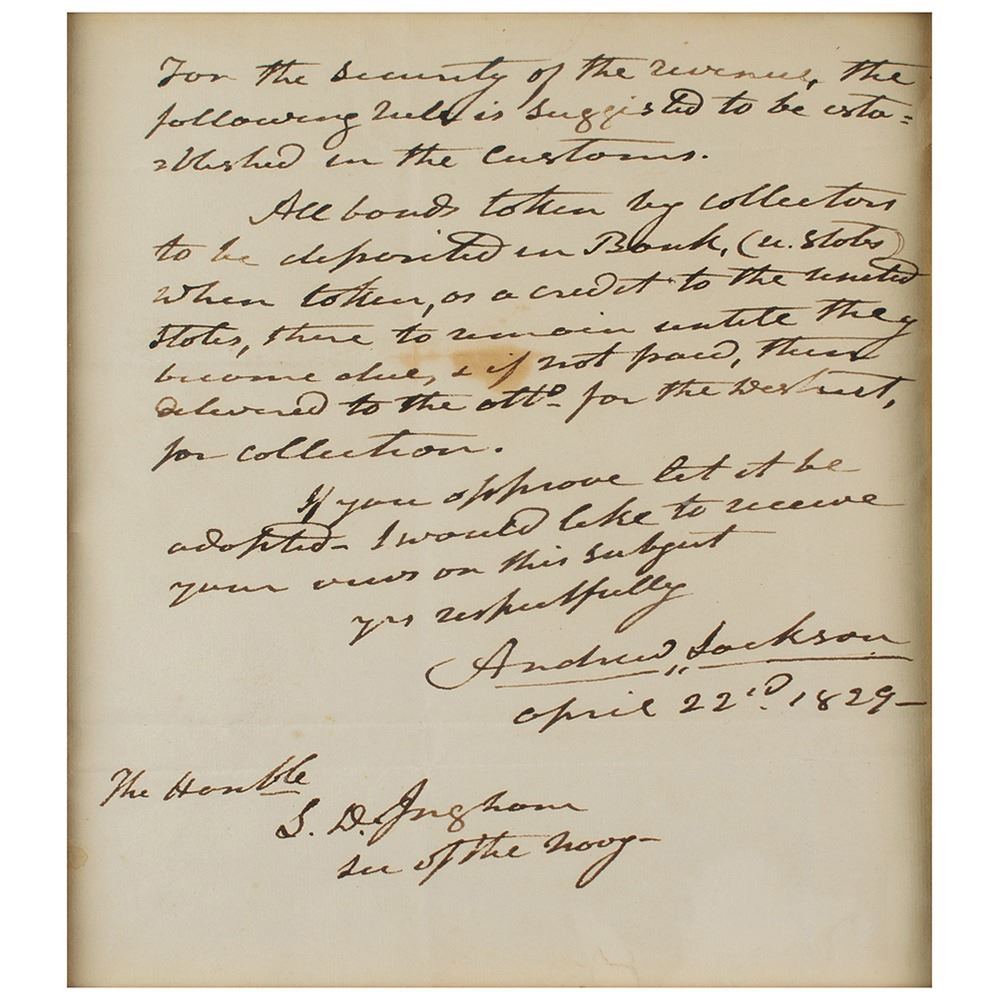 For the security of the revenue, the
following rule is suggisted to be esta=
ablished in the Customs.
All bonds token by collectors
to be deposited in Bank, (u. States)
when token, as a credit to the united
States, there to remain untile they
become due, & if not paid, then
delivered to the atto. for the District,
for collection.
If you approve let it be
adopted- I would like to receive
your views on this subject
yrs respectfully
Andrew Jackson
April 22nd. 1829-
The Honble
S. D. Ingham
sec of the